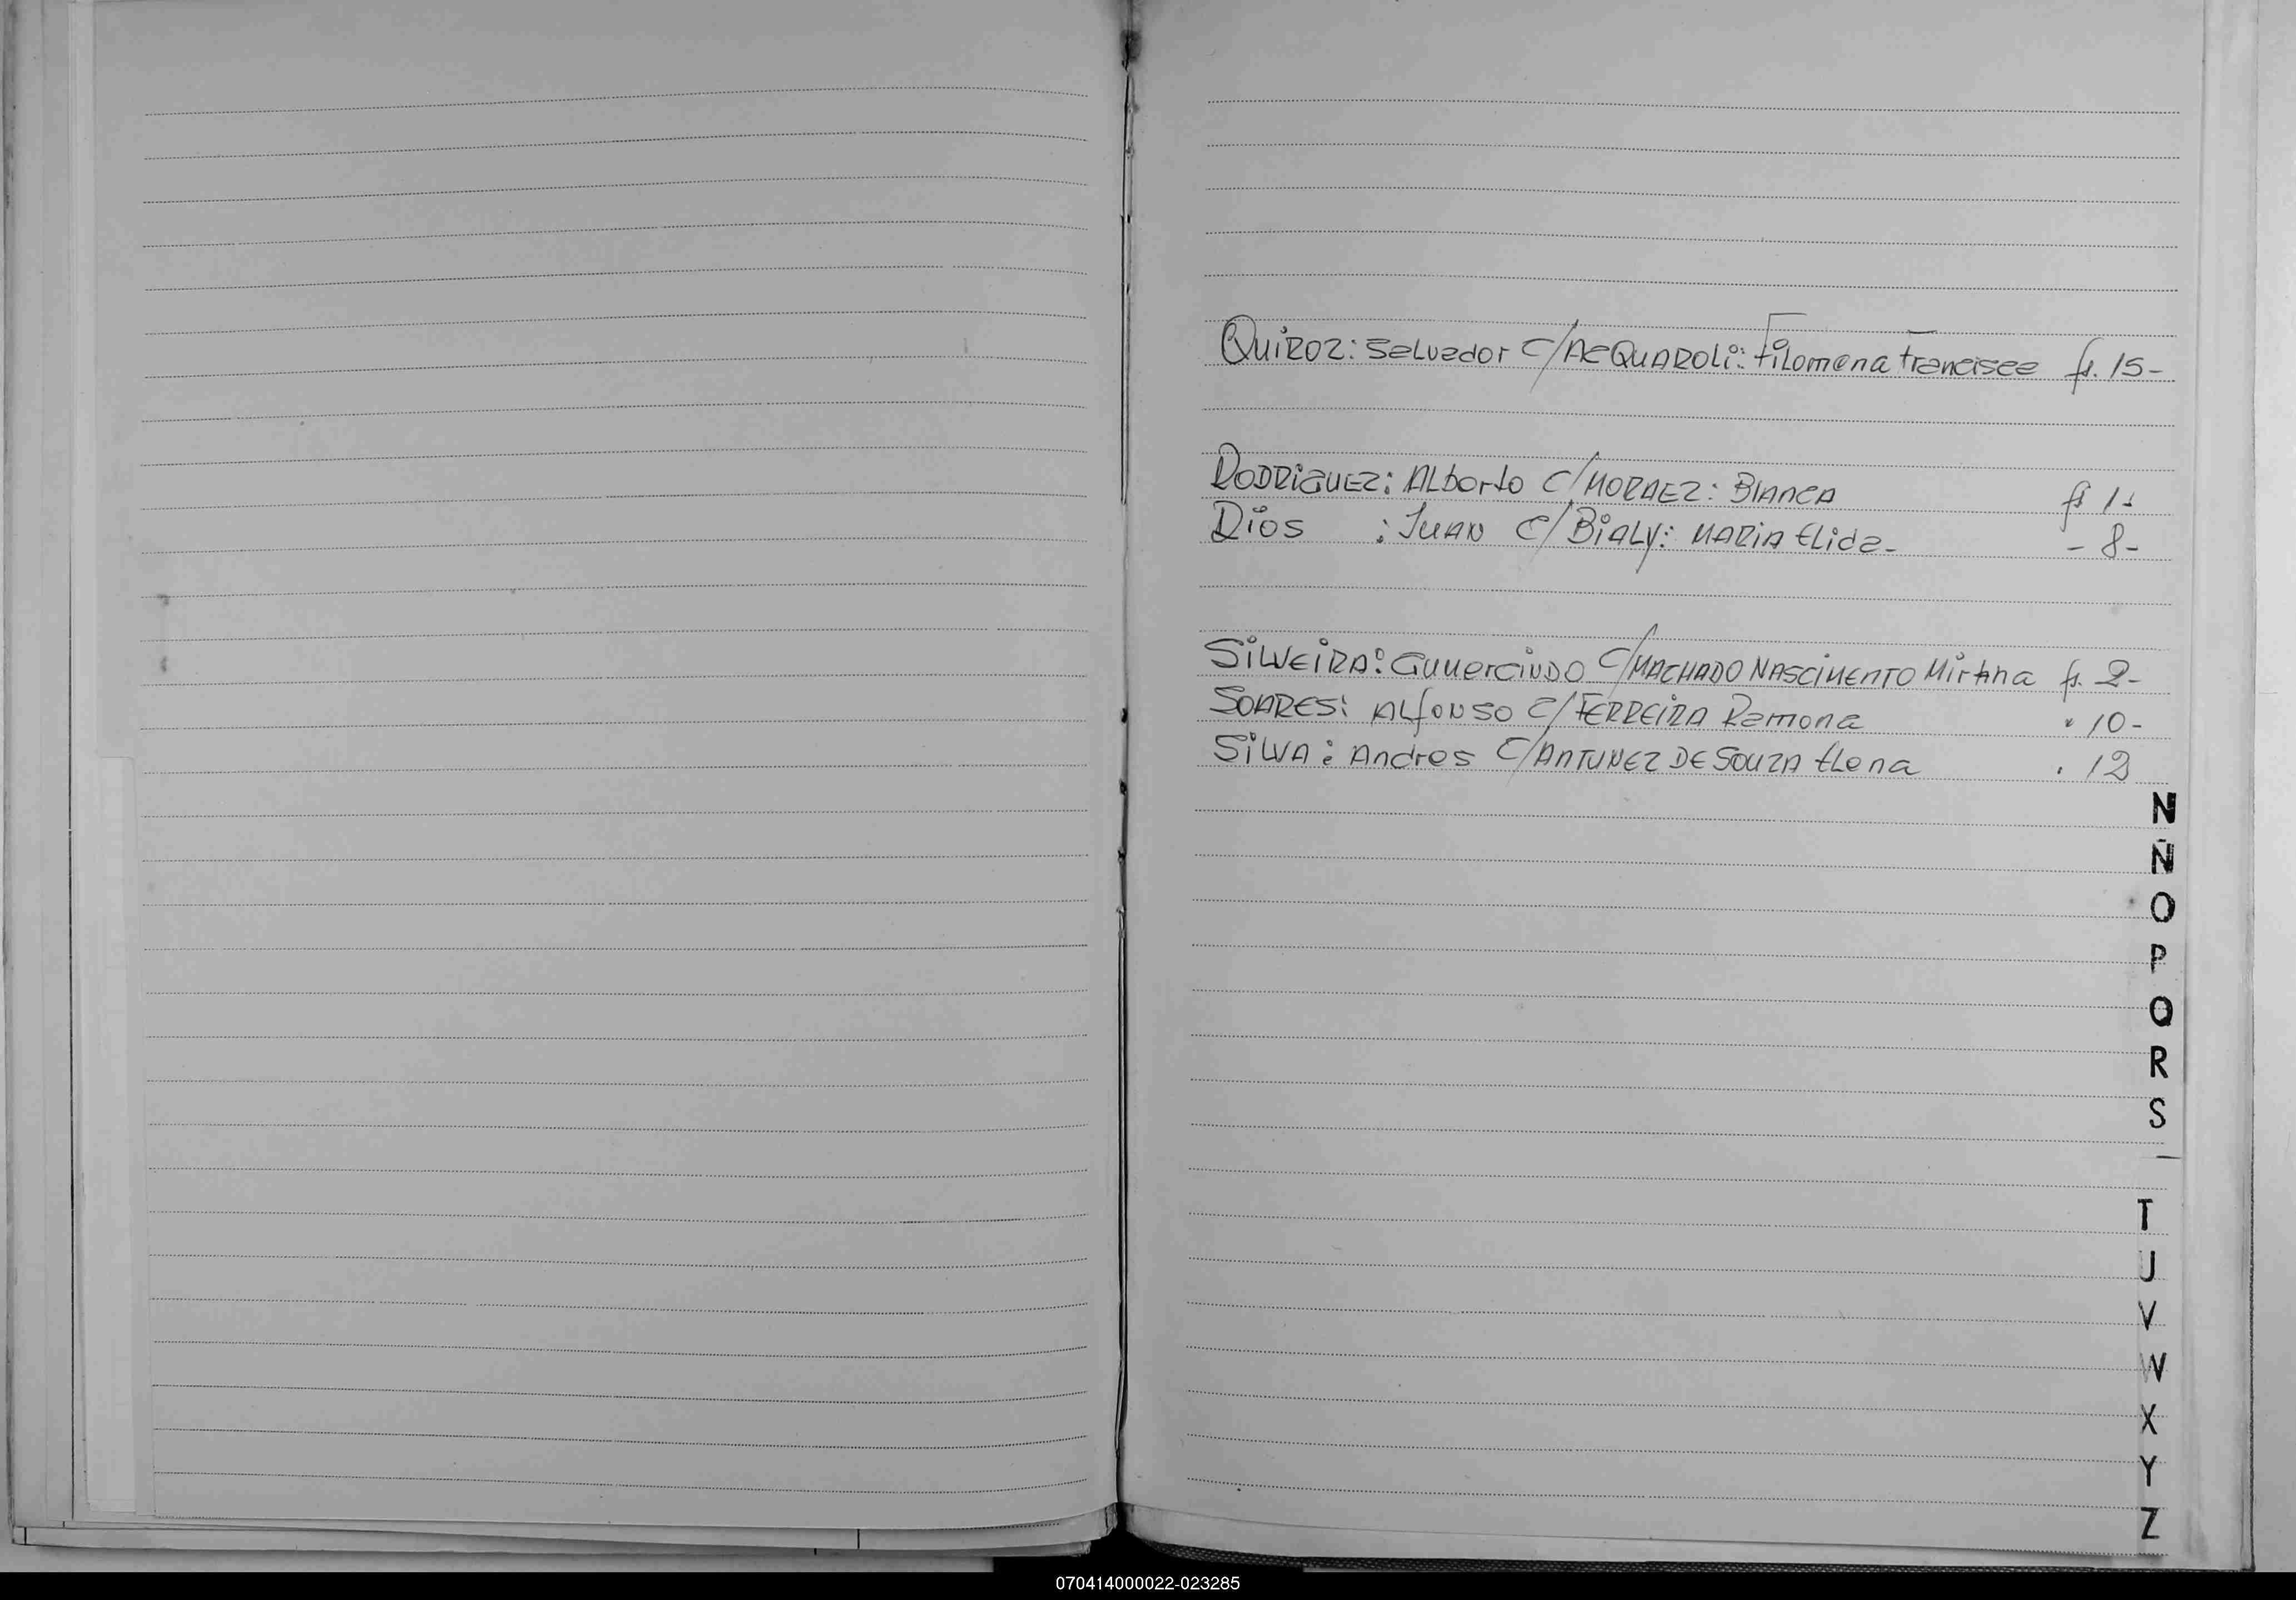 QUIROZ: Salvador C/ACQUAROLI: Filomena Francisca fs. 15-
RODRIGUEZ: ALberto C/MORAEZ: BlAncA fs 1-
Rios : JUAN C/BiALy: MARiA Elida- - 8-
SILVEIRA: GuMErciNDO C/MACHADO NASCIMENTO Mirtha fs. 2-
SOARES: ALfONSO C/FERREIRA Ramona " 10-
SILVA: Andres C/ANTUNEZ DE SOUZA Elena . 12
N
Ñ
O
P
Q
R
S
T
U
V
W
X
Y
Z
070414000022-023285